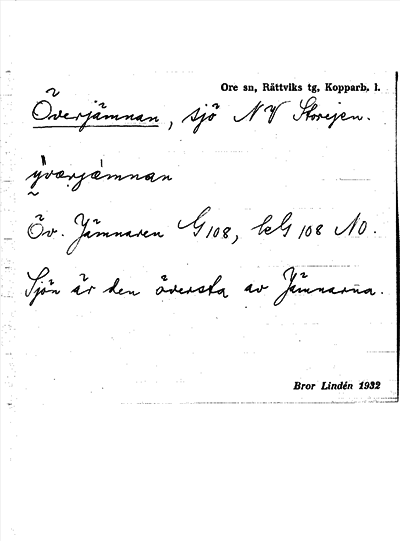 Ore sn, Rättviks tg, Kopparb. l.
Överjämnan, sjö NV Storejen.
yværjæmnan
Öv. Jämnaren G 108, kG 108 NO.
Sjön är den översta av Jämnarna.
Bror Lindén 1932